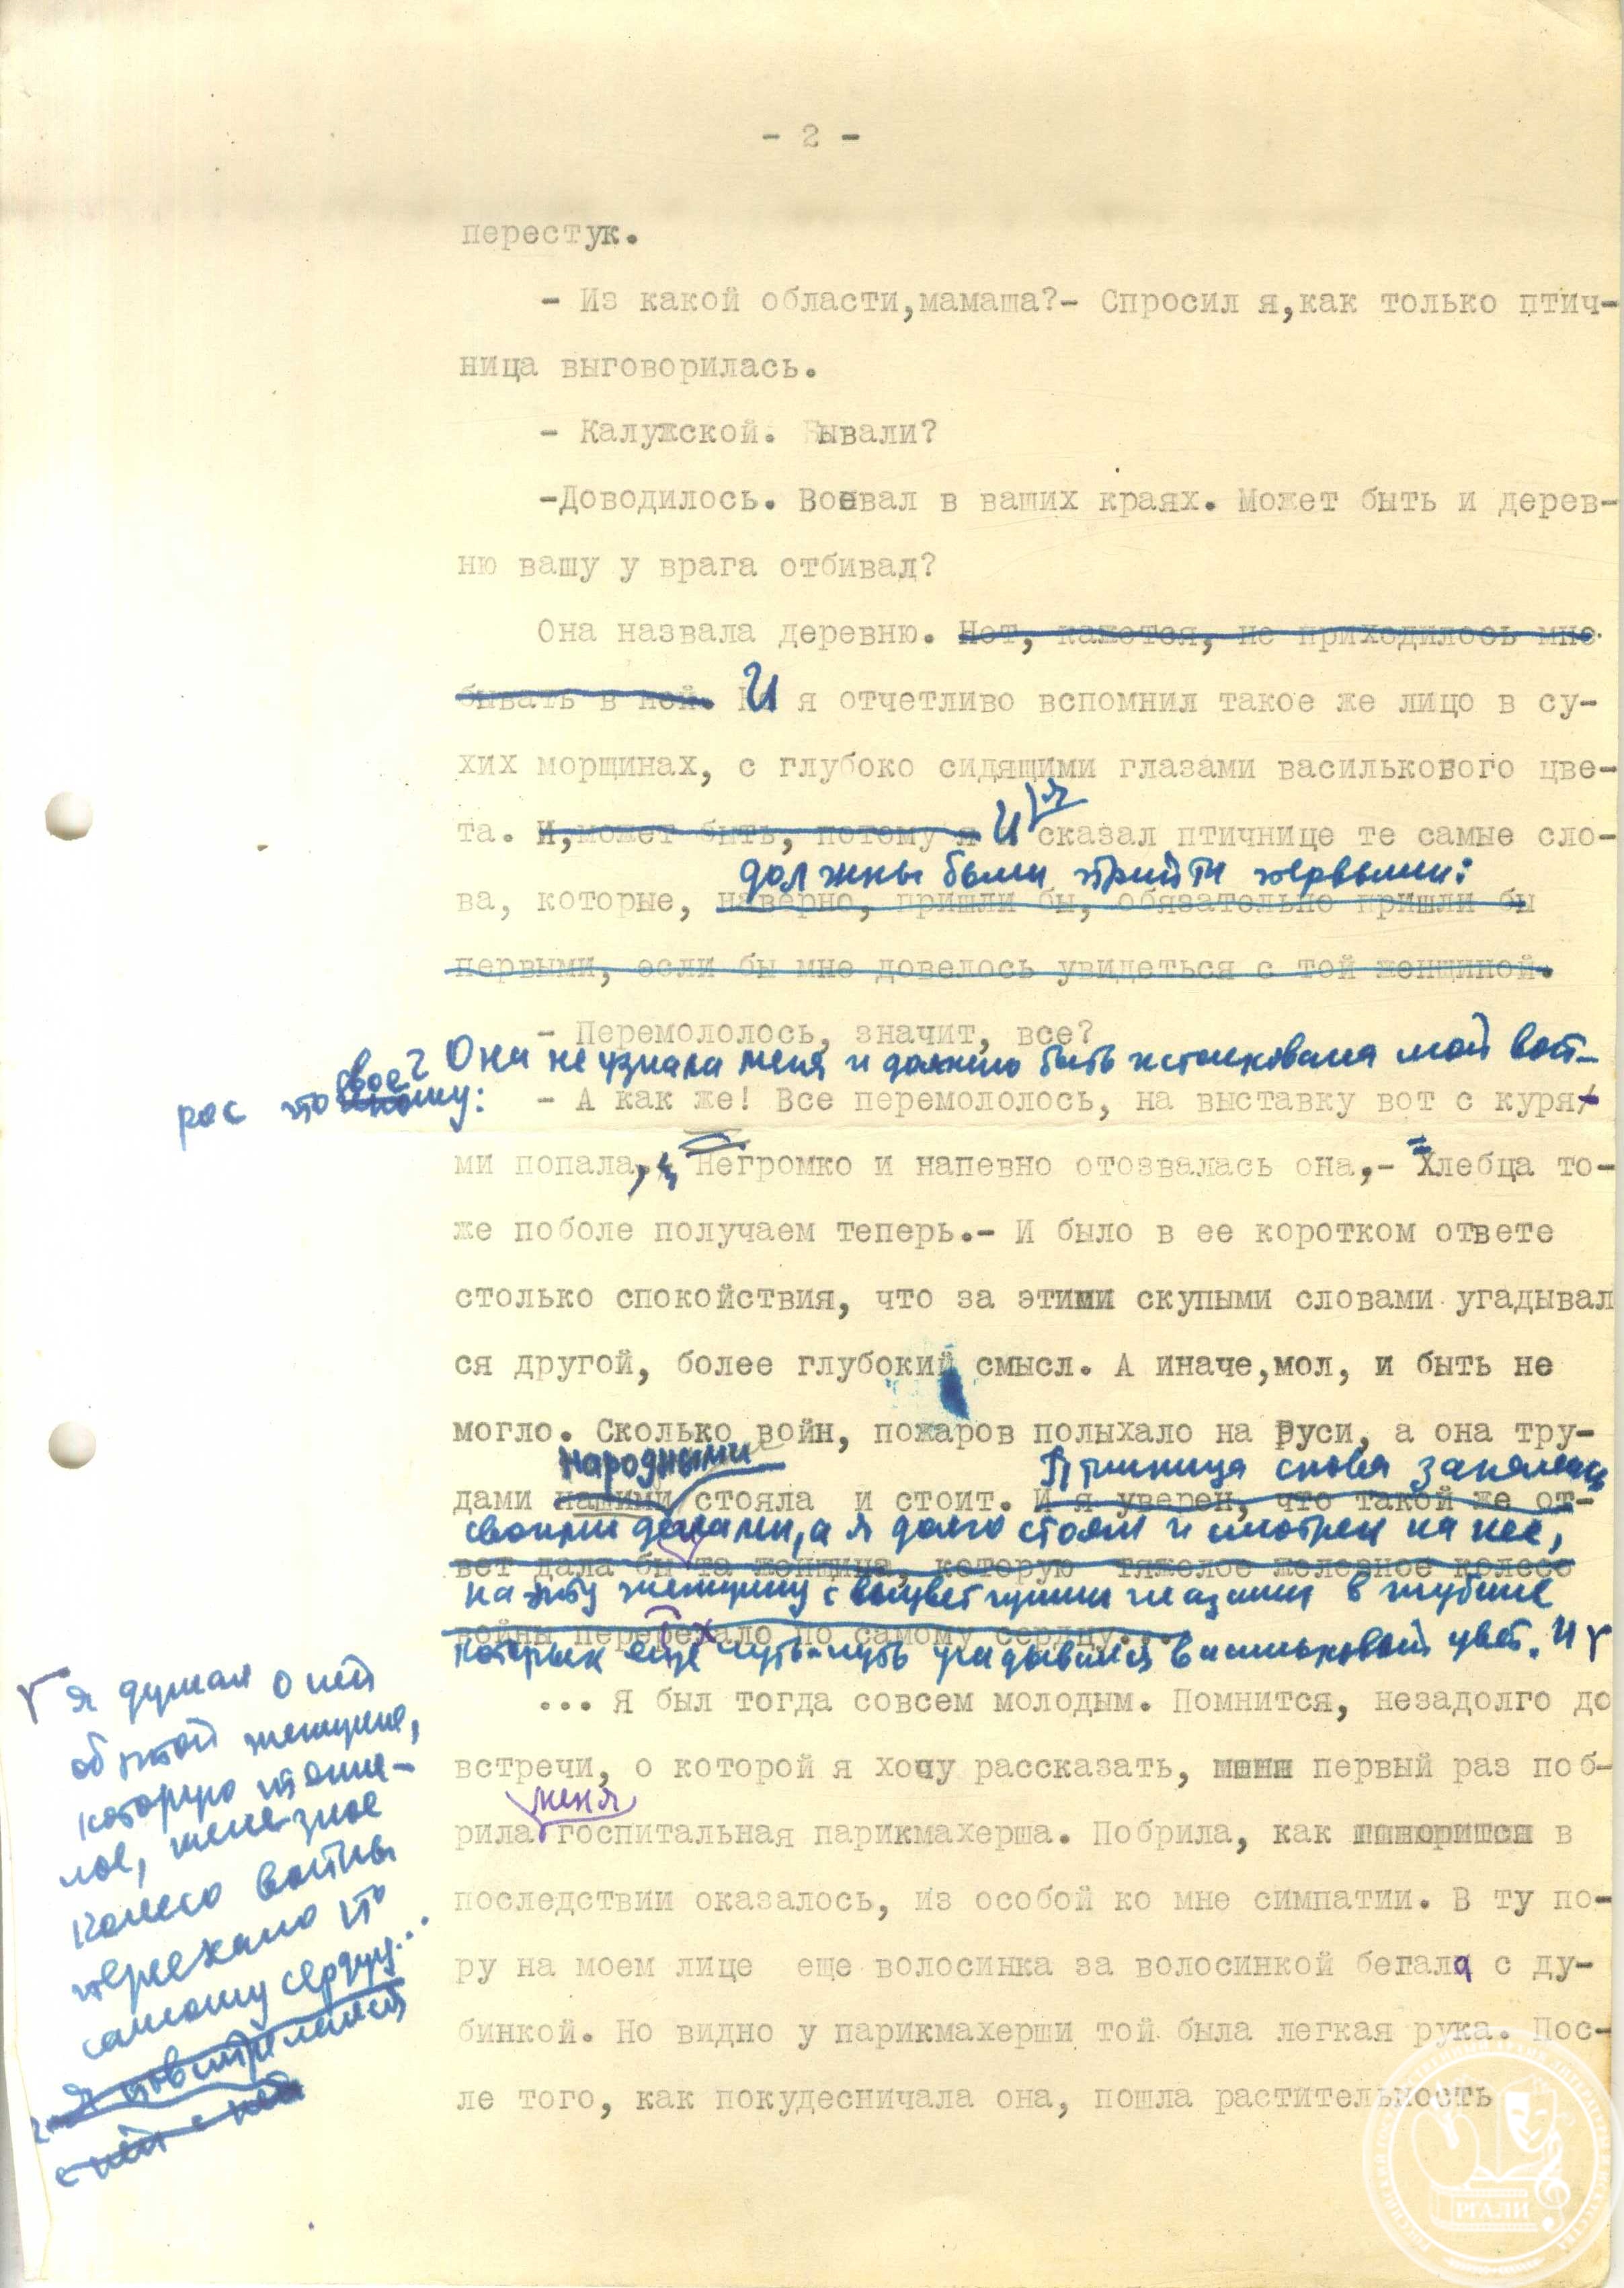 - 2 -
перестук.
- Из какой области,мамаша?- Спросил я,как только птич-
ница выговорилась.
- Калужской. Бывали?
-Доводилось. Воевал в ваших краях. Может быть и дерев-
ню вашу у врага отбивал?
Она назвала деревню. Нет, кажется, не приходилось мне
бывать в ней. И я отчетливо вспомнил такое же лицо в су-
хих морщинах, с глубоко сидящими глазами василькового цве-
та. И,может быть, потому я И я сказал птичнице те самые сло-
должны были прийти первыми:
ва, которые, наверно, пришли бы, обязательно пришли бы
первыми, если бы мне довелось увидеться с той женщиной.
- Перемололось, значит, все?
Она не узнала меня и должно быть истолковала мой воп-
рос по своему:
- А как же! Все перемололось, на выставку вот с куря-
ми попала,- Негромко и напевно отозвалась она,- Хлебца то-
же поболе получаем теперь.- И было в ее коротком ответе
столько спокойствия, что за этими скупыми словами угадывал
ся другой, более глубокий смысл. А иначе,мол, и быть не
могло. Сколько войн, пожаров полыхало на Руси, а она тру-
народными Птичница снова занялась
дами нашими стояла и стоит. И я уверен, что такой же от-
своими делами, а я долго стоял и смотрел на нее,
вет дала бы та женщина, которую тяжелое железное колесо
на эту женщину с выцветшими глазами в глубине
войны переехало по самому сердцу...
которых еще чуть-чуть угадывался васильковый цвет. И
я думал о ней
об этой женщине,
которую тяже-
лое, железное
колесо войны
переехало по
самому сердцу...
... Я был тогда совсем молодым. Помнится, незадолго до
встречи, о которой я хочу рассказать, меня первый раз поб-
меня
рила госпитальная парикмахерша. Побрила, как в
последствии оказалось, из особой ко мне симпатии. В ту по-
ру на моем лице еще волосинка за волосинкой бегала с ду-
бинкой. Но видно у парикмахерши той была легкая рука. Пос-
ле того, как покудесничала она, пошла растительность
РГАЛИ